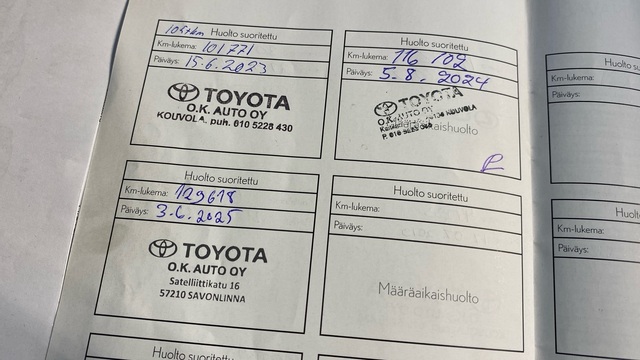 105tkm Huolto suoritettu
Km-lukema: 101771
Päiväys: 15.6.2023
TOYOTA
O.K. AUTO OY
KOUVOLA. puh. 010 5228 430
Huolto suoritettu
Km-lukema: 116 102
Päiväys: 5.8. 2024
TOYOTA
O.K. AUTO OY
KOUVOLA
Huolto suoritettu
Km-lukema: 129618
Päiväys: 3.6.2025
TOYOTA
O.K. AUTO OY
Satelliittikatu 16
57210 SAVONLINNA
Huolto suoritettu
Km-lukema:
Päiväys:
Määräaikaishuolto
Km-lukema:
Päiväys:
Km-lukema:
Päiväys:
Huolto suoritettu